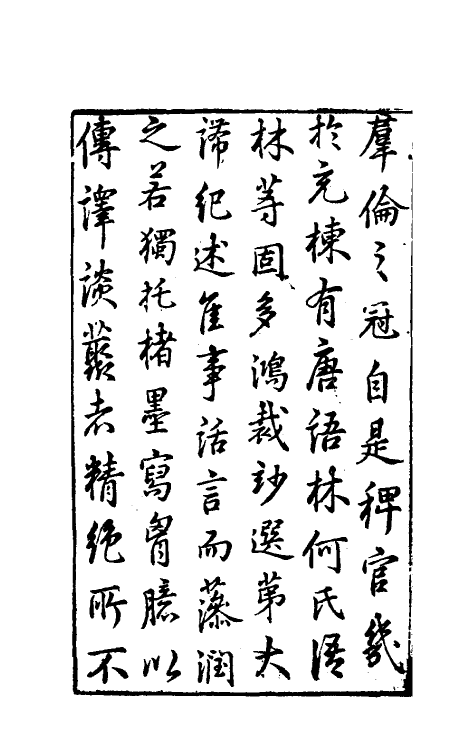 羣倫之冠自是稗官幾
於充棟有唐語林何氏語
林等固多鴻裁玅選第大
諦紀述佳事話言而藻潤
之若獨托楮墨寫胷臆以
傳譯談叢者精絶所不